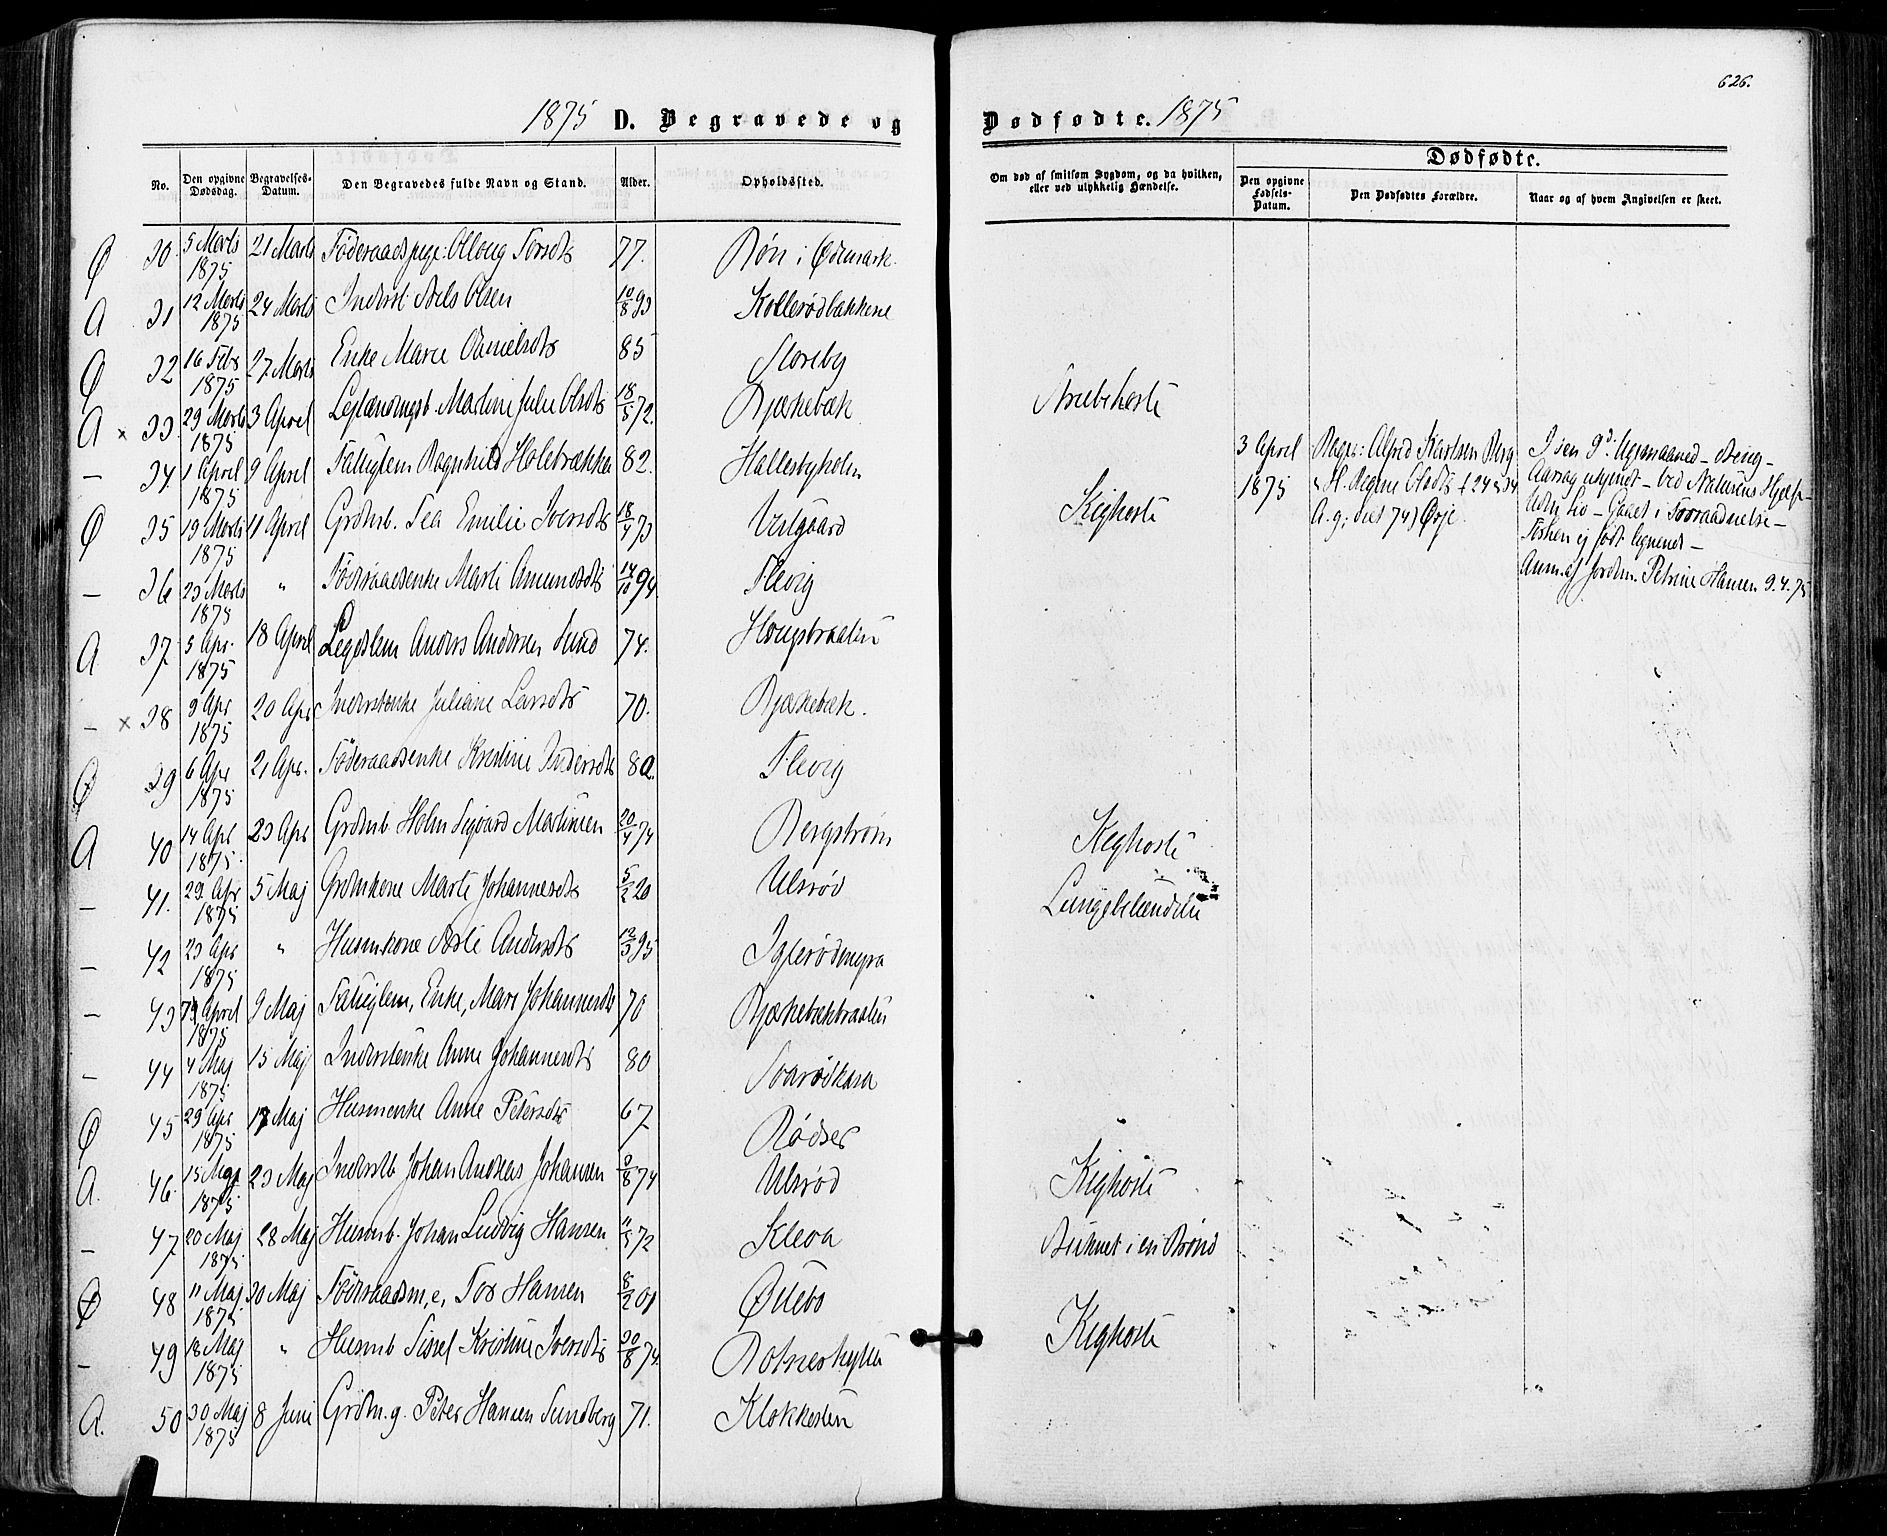 626.
1875 D. Begravede og Dødfødte. 1875
Dødfødte.
No. Den opgivne Dødsdag. Begravelses-Datum. Den Begravedes fulde Navn og Stand. Alder. Opholdssted. Om død af smitsom Sygdom, og da hvilken, eller ved ulykkelig Hændelse. Den opgivne Fødsels-Datum. Den Dødfødtes Forældre. Naar og af hvem Angivelsen er skeet.
Ø 30. 5 Marts 1875 21 Marts Föderaadspige: Olloug Torsdtr 77. Rön i Ødemark.
A 31 12 Marts 1875 24 Marts Inderst Niels Olsen 10/8 93 Kollerødbakkene
Ø 32 16 Febr 1875 27 Marts Enke Maree Danielsdtr 85 Storeby
A × 33 29 Marts 1875 3 April Martine Julie Olsdtr 18/5 72. Bjækebæk Strubehoste
– 34 1 April 1875 9 April Fattiglem Ragnhild Holebrække 82. Hallesbyholm
3 April 1875 Alfred Karlsen Berg
Petrine Hansen 3.4.75
Ø 35 19 Marts 1875 11 April Grdmb. Tea Emilie Iversdtr 18/4 73 Valgaard Kighoste
– 36 23 Marts 1875 " Föderaadsenke Marte Amundsdtr 14/10 94 Flevig
A 37 5 Apr. 1875 18 April Legdslem Anders Andersen Sund 74. Hougsbraaten
– × 38 9 Apr 1875 20 Apr Inderstenke Juliane Larsdtr 70. Bjækebæk.
Ø 39 6 Apr 1875 21 Apr. Föderaadsenke Kristine Andersdtr 80. Flevig
A 40 14 Apr 1875. 23 Apr Grdmb. Holm Sigvard Martinsen 20/4 74 Bergstrøm Kighoste
– 41. 29 Apr 1875 5 Maj Grdmkone Marte Johannesdtr 5/2 20 Ulsrød Lungebetændelse
– 42 23 Apr 1875 " Husmkone Andersdtr 12/3 95 Iglerødmyra
– 43 April 1875 9 Maj Fattiglem, Enke, Mari Johannesdtr 70 Bjækebækbraaten
– 44 4 Maj 1875 15 Maj Inderstenke Anne Johannesdtr 80
Ø 45 29 Apr 1875 17 Maj Husmenke Anne Petersdtr 67 Rødser
A. 46. 15 Maj 1875 23 Maj Inderstb Johan Andreas Johansen 9/8 74 Ulsrød Kighoste
– 47 20 Maj 1875 28 Maj Husmb. Johan Ludvig Hansen 11/5 72 Kleva Druknet i en Brönd
Ø 48 11 Maj 1875 30 Maj Föderaadsm, e, Tor Hansen 8/2 01 Ørebo
– 49 18 Maj 1875 " Husmb Sissel Kristine Iversdtr 30/8 74. Kighoste
A. 50 30 Maj 1875 8 Juni Grdm.g. Peter Hansen Sundberg 71. Klokkesten